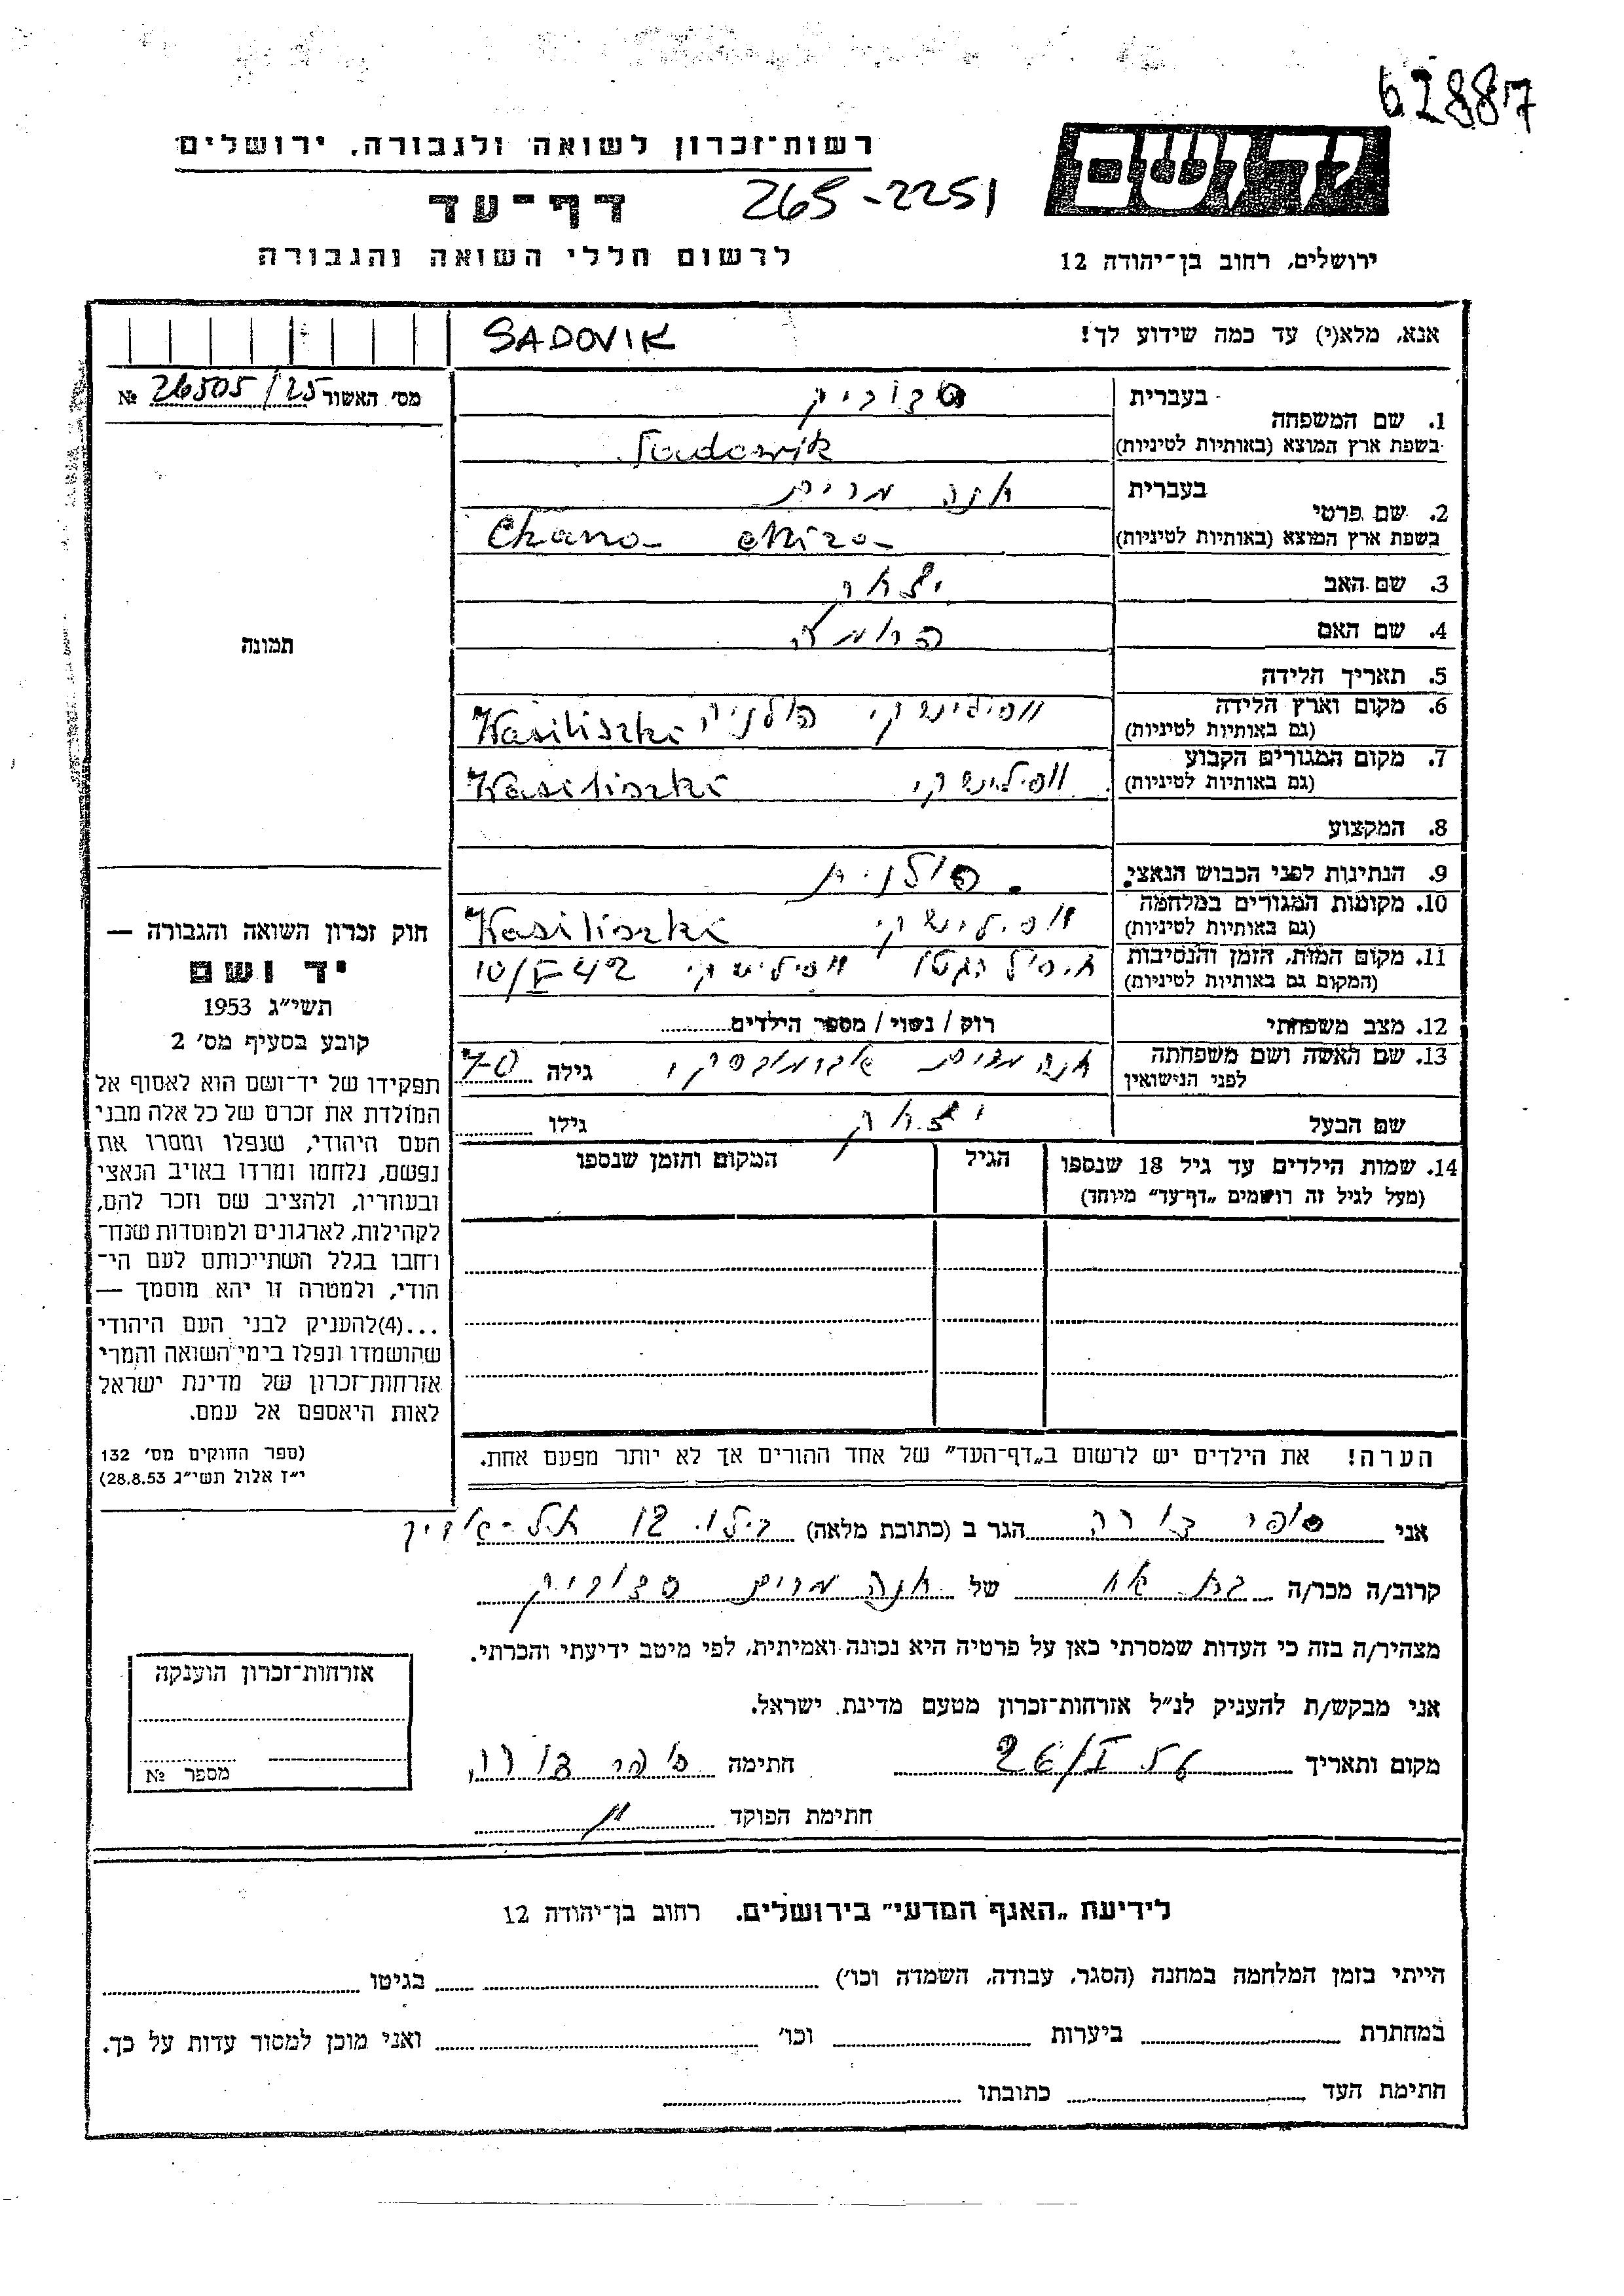 62887
רשות־זכרון לשואה ולגבורה, ירושלים
יד ושם
265-2251
דף־עד
לרשום חללי השואה והגבורה
ירושלים, רחוב בן־יהודה 12
אנא, מלא(י) עד כמה שידוע לך!
SADOVIK
מס׳ האשור № 26505/25
בעברית
סדוביק
1. שם המשפחה
בשפת ארץ המוצא (באותיות לטיניות)
Sadowik
בעברית
חנה מרים
2. שם פרטי
בשפת ארץ המוצא (באותיות לטיניות)
Chana
3. שם האב
4. שם האם
תמונה
5. תאריך הלידה
6. מקום וארץ הלידה
(גם באותיות לטיניות)
ווסילישקי פולניה Wasiliszki
7. מקום המגורים הקבוע
(גם באותיות לטיניות)
ווסילישקי Wasiliszki
8. המקצוע
9. הנתינות לפני הכבוש הנאצי
פולנית
10. מקומות המגורים במלחמה
(גם באותיות לטיניות)
ווסילישקי Wasiliszki
11. מקום המות, הזמן והנסיבות
(המקום גם באותיות לטיניות)
חיסול הגטו ווסילישקי 10/V 42
12. מצב משפחתי
רוק / נשוי / מספר הילדים
13. שם האשה ושם משפחתה
לפני הנישואין
חנה מרים אברמובסקי גילה 70
שם הבעל
יצחק גילו
14. שמות הילדים עד גיל 18 שנספו
(מעל לגיל זה רושמים „דף־עד״ מיוחד)
הגיל
המקום והזמן שנספו
חוק זכרון השואה והגבורה —
יד ושם
תשי״ג 1953
קובע בסעיף מס׳ 2
תפקידו של יד־ושם הוא לאסוף אל
המולדת את זכרם של כל אלה מבני
העם היהודי, שנפלו ומסרו את
נפשם, נלחמו ומרדו באויב הנאצי
ובעוזריו, ולהציב שם וזכר להם,
לקהילות, לארגונים ולמוסדות שנח־
רחבו בגלל השתייכותם לעם הי־
הודי, ולמטרה זו יהא מוסמך —
...(4)להעניק לבני העם היהודי
שהושמדו ונפלו בימי השואה והמרי
אזרחות־זכרון של מדינת ישראל
לאות היאספם אל עמם.
(ספר החוקים מס׳ 132
י״ז אלול תשי״ג 28.8.53)
הערה! את הילדים יש לרשום ב„דף־העד״ של אחד ההורים אך לא יותר מפעם אחת.
אני סופי דורה הגר ב (כתובת מלאה) בילו 12 תל-אביב
קרוב/ה מכר/ה בת אח של חנה מרים סדוביק
מצהיר/ה בזה כי העדות שמסרתי כאן על פרטיה היא נכונה ואמיתית, לפי מיטב ידיעתי והכרתי.
אני מבקש/ת להעניק לנ״ל אזרחות־זכרון מטעם מדינת ישראל.
מקום ותאריך 26/I 56 חתימה סופי דורה
חתימת הפוקד
אזרחות־זכרון הוענקה
מספר №
לידיעת „האגף המדעי״ בירושלים. רחוב בן־יהודה 12
הייתי בזמן המלחמה במחנה (הסגר, עבודה, השמדה וכו׳) בגיטו
במחתרת ביערות וכו׳ ואני מוכן למסור עדות על כך.
חתימת העד כתובתו